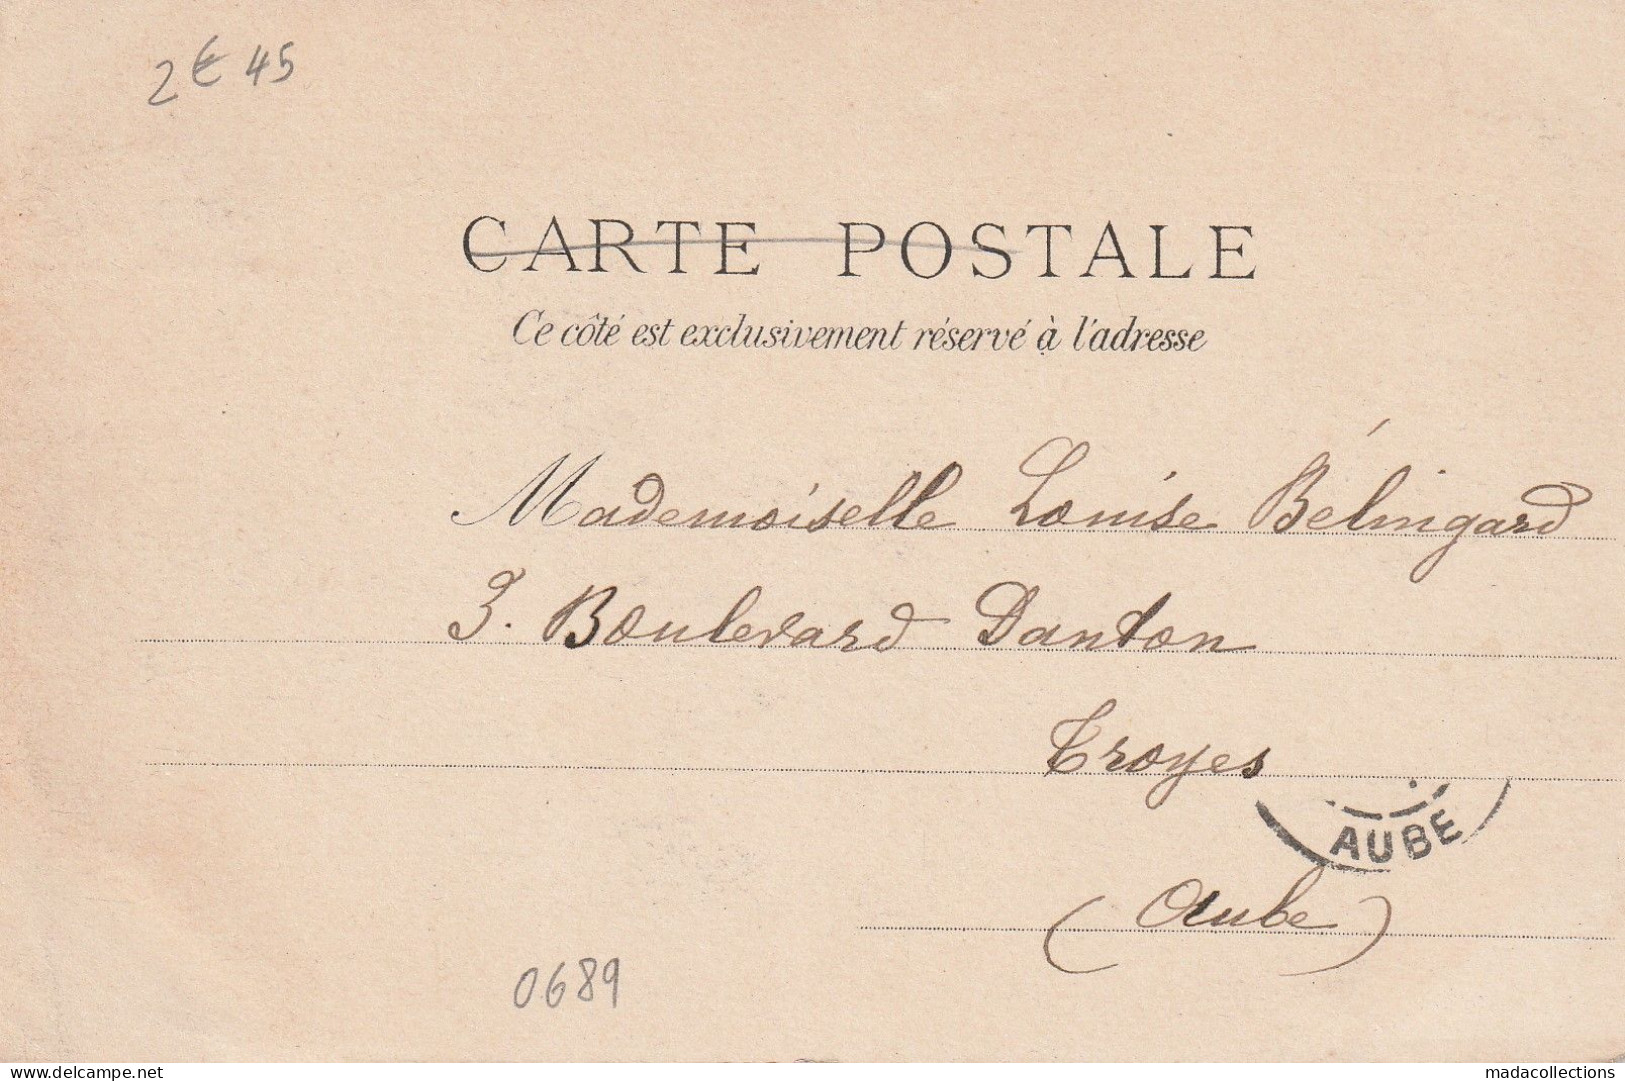 2€45
CARTE POSTALE
Ce côté est exclusivement réservé à l'adresse
Mademoiselle Louise Bélingard
3. Boulevard Danton
Troyes
AUBE
(Aube)
0689
delcampe.net
madacollections